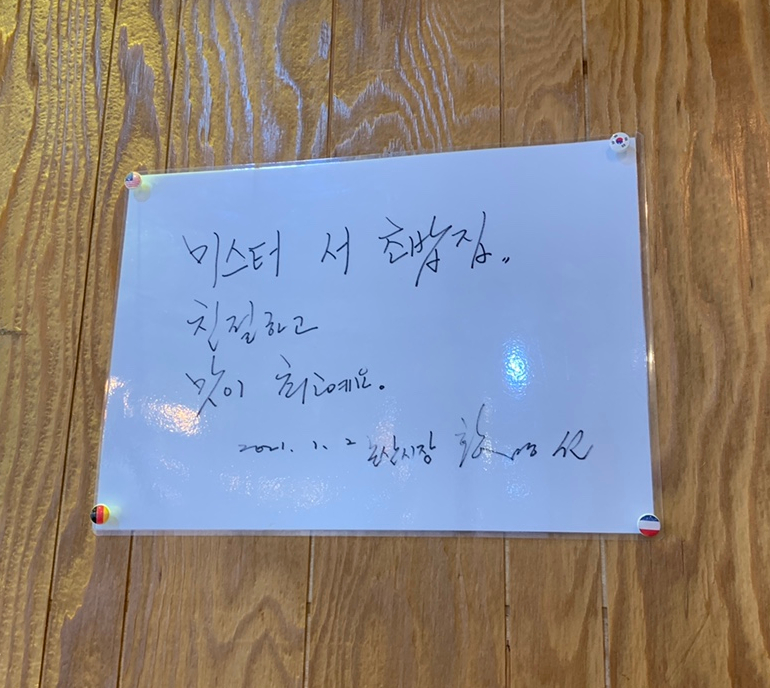 미스터 서 초밥집"
친절하고
맛이 최고예요.
2021. 1. 2 논산시장 황명선